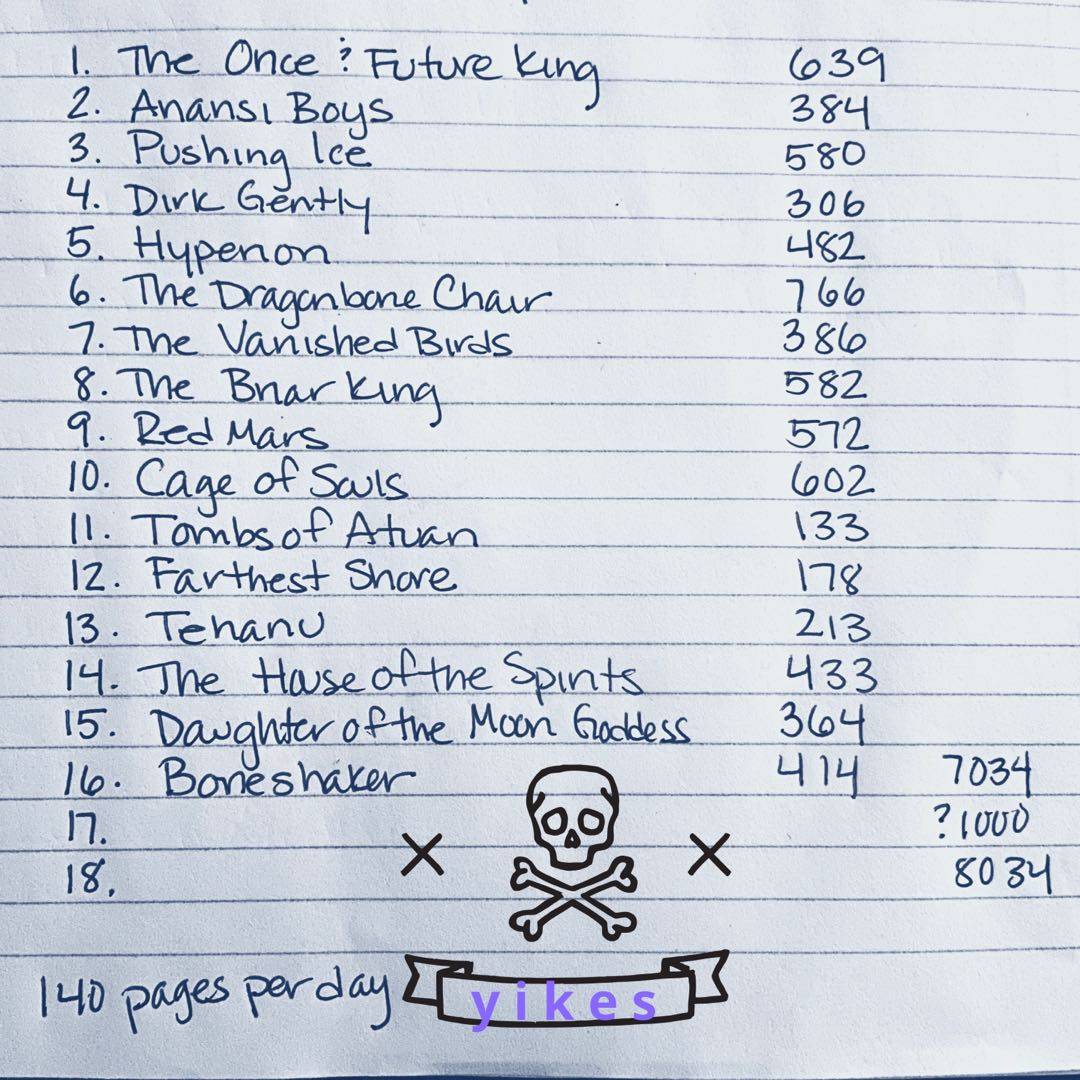 1. The Once & Future King 639
2. Anansi Boys 384
3. Pushing Ice 580
4. Dirk Gently 306
5. Hyperion 482
6. The Dragonbone Chair 766
7. The Vanished Birds 386
8. The Briar King 582
9. Red Mars 572
10. Cage of Souls 602
11. Tombs of Atuan 133
12. Farthest Shore 178
13. Tehanu 213
14. The House of the Spirits 433
15. Daughter of the Moon Goddess 364
16. Boneshaker 414 7034
17. ?1000
18. 8034
140 pages per day
yikes